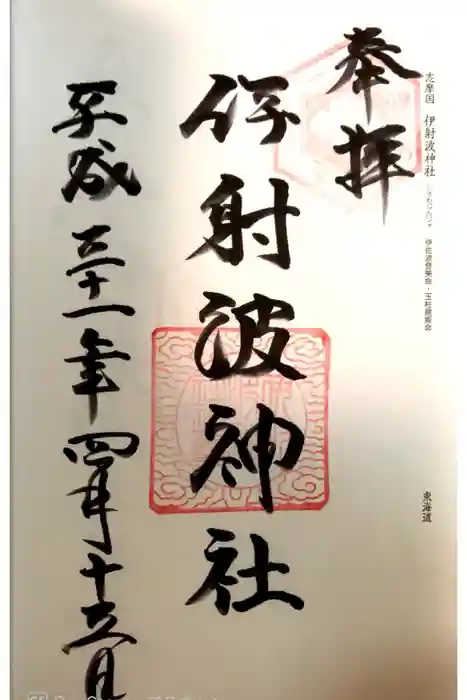 志摩国 伊射波神社 伊佐波登美命・玉柱屋姫命
東海道
奉拝
伊射波神社
平成三十一年四月十六日